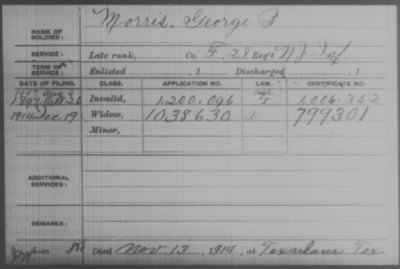 Morris, George B
NAME OF SOLDIER:
SERVICE: Late rank, Co. F, 28 Reg't N J Inf
TERM OF SERVICE: Enlisted , 1 Discharged , 1
DATE OF FILING. CLASS. APPLICATION NO. LAW. CERTIFICATE NO.
1897 Invalid, 1.200.096
1914 Dec 19 Widow, 1038630 799301
Minor,
ADDITIONAL SERVICES:
REMARKS:
Died Nov 13, 1914, at Texarkana Tex.